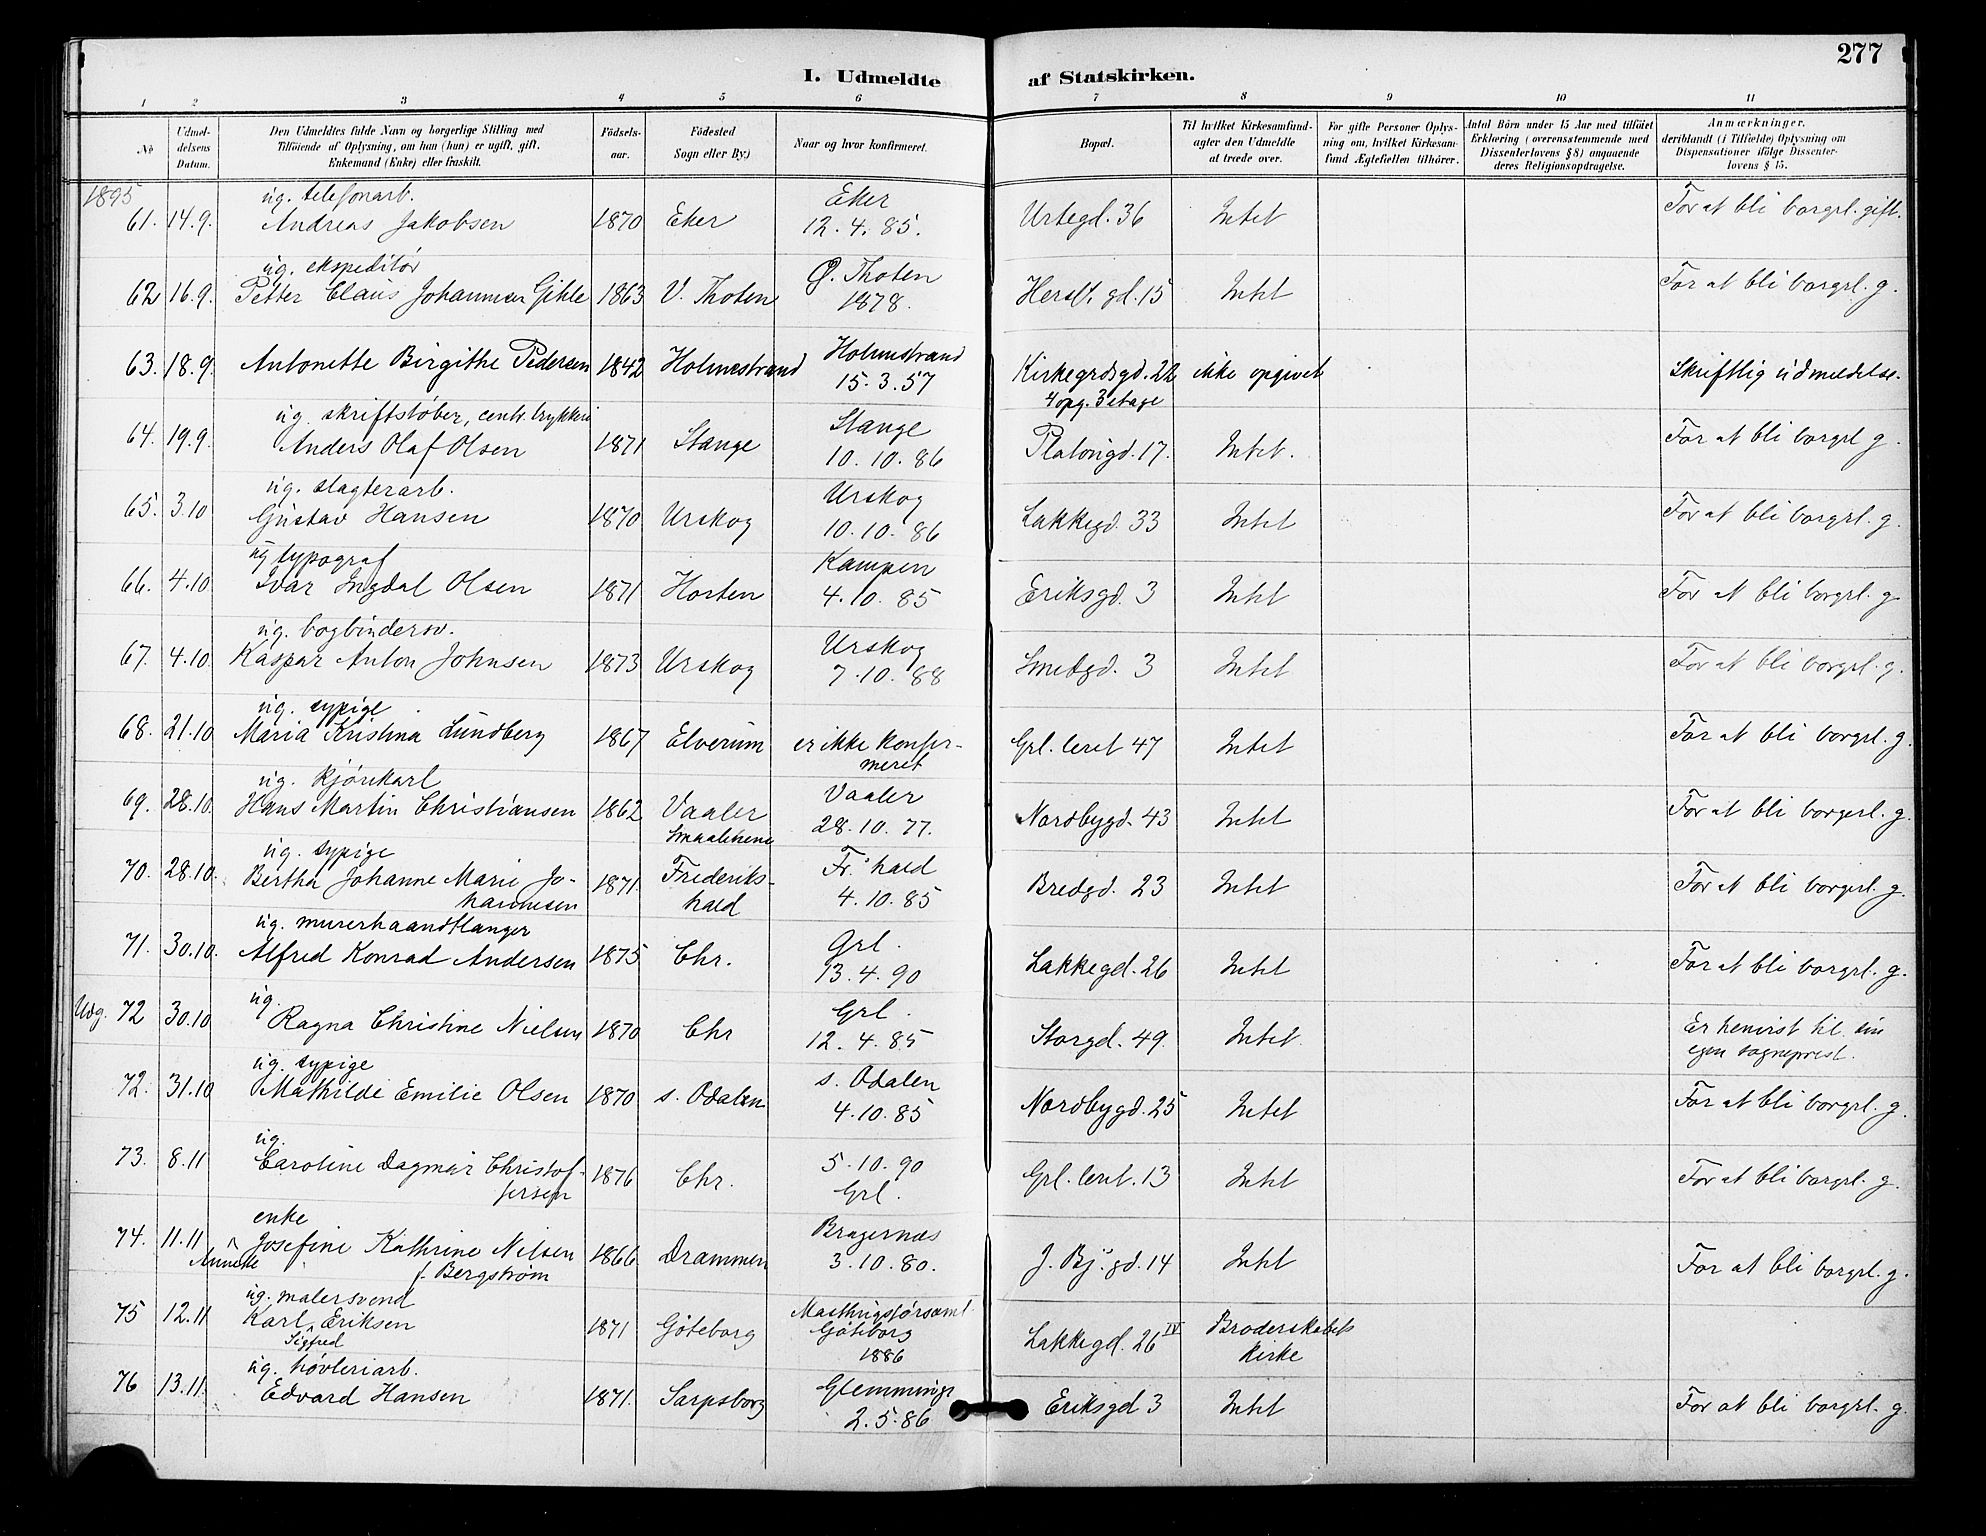 277
I. Udmeldte af Statskirken.
1 2 3 4 5 6 7 8 9 10 11
No
Udmeldelsens Datum.
Den Udmeldtes fulde Navn og borgerlige Stilling med Tilföiende af Oplysning, om han (hun) er ugift, gift, Enkemand (Enke) eller fraskilt.
Födselsaar.
Födested Sogn eller By.)
Naar og hvor konfirmeret.
Bopæl.
Til hvilket Kirkesamfund agter den Udmeldte at træde over.
For gifte Personer Oplysning om, hvilket Kirkesamfund Ægtefellen tilhörer.
Antal Börn under 15 Aar med tilföiet Erklæring (overensstemmende med Dissenterlovens § 8) angaaende deres Religionsopdragelse.
Anmærkninger, deriblandt (i Tilfælde) Oplysning om Dispensationer ifölge Dissenterlovens § 15.
1895
61. 14.9. ug. telefonarb. Andreas Jakobsen 1870 Eker Eker 12.4.85. Urtegd. 36 Intet For at bli borgrl. gift.
62 16.9. ug. ekspeditør Petter Claus Johannsen Gihle 1863 V. Thoten Ø. Thoten 1878. Hersl. gd. 15 Intet For at bli borgrl. g.
63. 18.9. Antonette Birgithe Pedersen 1842 Holmestrand Holmestrand 15.3.57 Kirkegrdsgd. 22 4 opg. 3 etage ikke opgivet Skriftlig udmeldelse.
64. 19.9. ug. skriftstøber, centr. trykkeri Anders Olaf Olsen 1871 Stange Stange 10.10.86 Platougd. 17. Intet. For at bli borgrl g.
65. 3.10 ug. slagterarb. Gustav Hansen 1870 Urskog Urskog 10.10.86 Lakkegd. 33 Intet For at bli borgrl. g.
66. 4.10 ug typograf Ivar Ingdal Olsen 1871 Horten Kampen 4.10.85 Eriksgd. 3 Intet For at bli borgrl. g
67. 4.10. ug. bogbindersv. Kaspar Anton Johnsen 1873 Urskog Urskog 7.10.88 Smedgd. 3 Intet For at bli borgrl. g.
68. 21.10 ug. sypige Maria Kristina Lundberg 1867 Elverum er ikke konfirmeret Grl. leret 47 Intet For at bli borgrl. g.
69. 28.10. ug. kjørekarl Hans Martin Christiansen 1862 Vaaler Smaalenene Vaaler 28.10.77. Nordbygd. 43 Intet For at bli borgerl. g.
70. 28.10. ug. sypige Bertha Johanne Marie Johannesen 1871 Frederikshald Fr.hald 4.10.85 Bredgd. 23 Intet For at bli borgerl. g.
71. 30.10. ug. murerhaandtlanger Alfred Konrad Andersen 1875 Chr. Grl. 13.4.90 Lakkegd. 26 Intet For at bli borgrl. g.
Udg. 72 30.10 ug. Ragna Christine Nielsen 1870 Chr Grl. 12.4.85 Storgd. 49. Intet Er henvist til sin egen sogneprest.
72. 31.10 ug. sypige Mathilde Emilie Olsen 1870 s. Odalen s. Odalen 4.10.85 Nordbygd. 25 Intet For at bli borgrl. g.
73. 8.11 ug. Caroline Dagmar Christoffersen 1876 Chr. 5.10.90 Grl. Grl. leret. 13 Intet For at bli borgrl. g.
74. 11.11 enke Annette Josefine Kathrine Nilsen f. Bergstrøm 1866 Drammen Bragernæs 3.10.80. J. Bj. gd. 14 Intet For at bli borgrl. g.
75 12.11 ug. malersvend Karl Sigfred Eriksen 1871 Göteborg Masthugsförsaml. Göteborg 1886 Lakkegd. 26 IV Broderskabets kirke
76 13.11. ug. høvleriarb. Edvard Hansen 1871. Sarpsborg Glemminge 2.5.86 Eriksgd 3 Intet For at bli borgrl. g.